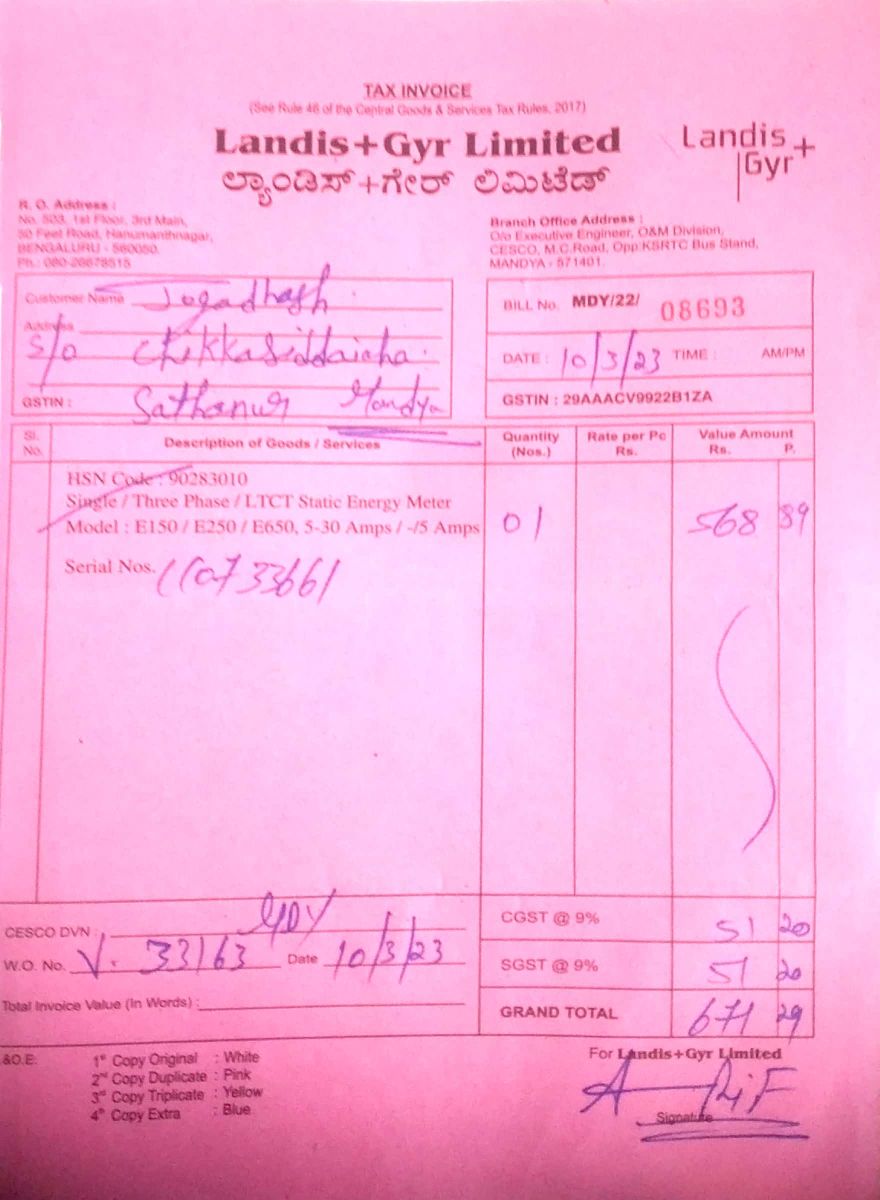 TAX INVOICE
(See Rule 46 of the Central Goods & Services Tax Rules, 2017)
Landis+Gyr Limited
ಲ್ಯಾಂಡಿಸ್+ಗೇರ್ ಲಿಮಿಟೆಡ್
Landis
Gyr+
R. O. Address :
No. 503, 1st Floor, 3rd Main,
50 Feet Road, Hanumanthnagar,
BENGALURU - 560050.
Ph.: 080-26678515
Branch Office Address :
O/o Executive Engineer, O&M Division,
CESCO, M.C.Road, Opp.KSRTC Bus Stand,
MANDYA - 571401.
Customer Name
Address
S/o Chikkasiddaiaha
GSTIN : Sathanur Mandya
BILL No. MDY/22/ 08693
DATE : 10/3/23 TIME : AM/PM
GSTIN : 29AAACV9922B1ZA
Sl. No. Description of Goods / Services Quantity (Nos.) Rate per Pc Rs. Value Amount Rs. P.
HSN Code : 90283010
Single / Three Phase / LTCT Static Energy Meter
Model : E150 / E250 / E650, 5-30 Amps / -/5 Amps 01 568 89
Serial Nos. 110733661
CESCO DVN : MDY
W.O. No. V. 33163 Date 10/3/23
Total Invoice Value (In Words) :
CGST @ 9% 51 20
SGST @ 9% 51 20
GRAND TOTAL 671 29
&O.E.
1st Copy Original : White
2nd Copy Duplicate : Pink
3rd Copy Triplicate : Yellow
4th Copy Extra : Blue
For Landis+Gyr Limited
Signature